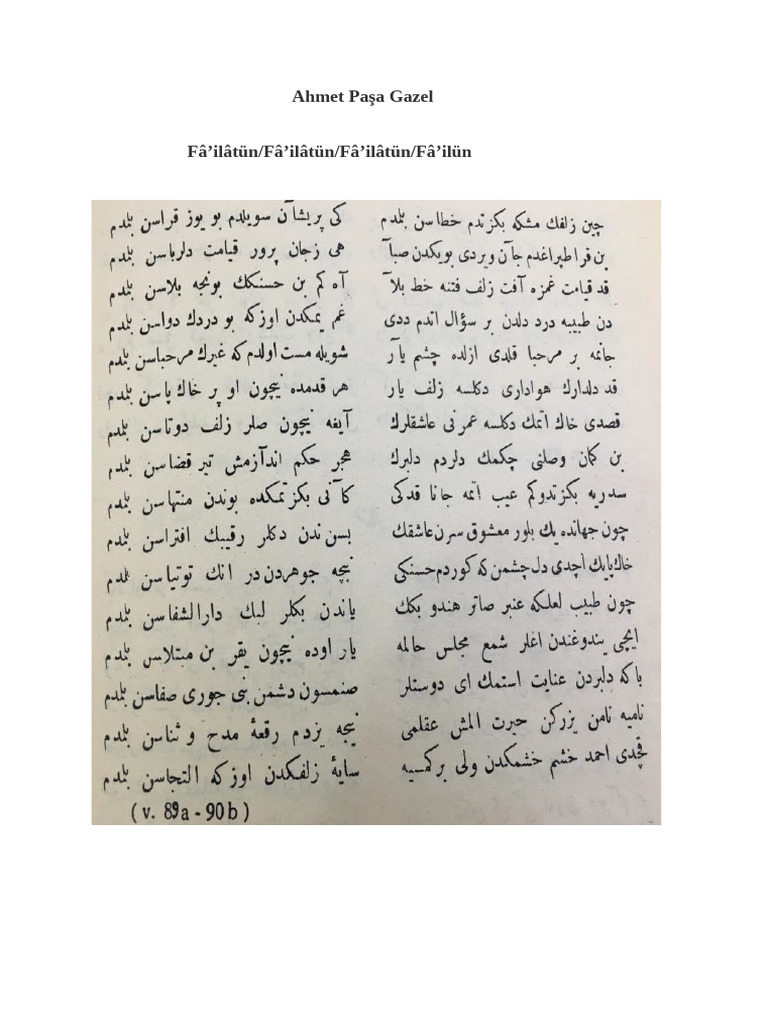 Ahmet Paşa Gazel
Fâ’ilâtün/Fâ’ilâtün/Fâ’ilâtün/Fâ’ilün
چین زلفك مشكه بكزتدم خطاسن بلمدم کی پریشان سویلدم بو یوز قراسن بلمدم
بن قرا طپراغدم جان ویردی بویكدن صبا هی زجان پرور قیامت دلرباسن بلمدم
قد قیامت غمزه آفت زلف فتنه خط بلا آه كم بن حسنكك بونجه بلاسن بلمدم
دن طبیبه درد دلدن بر سؤال اتدم ددی غم یمكدن اوزكه بو دردك دواسن بلمدم
جانمه بر مرحبا قلدی ازلده چشم یار شویله مست اولدم كه غیرك مرحباسن بلمدم
قد دلدارك هواداری دكلسه زلف یار هر قدمده نیچون اوپر خاك پاسن بلمدم
قصدی خاك اتمك دكلسه عمرنی عاشقلرك آیغه نیچون صلر زلف دوتاسن بلمدم
بن كمان وصلنی چكمك دلردم دلبرك هجر حكم اندازمش تیر قضاسن بلمدم
سدریه بكزتدوكم عیب اتمه جانا قدكی كآنی بكزتمكده بوندن منتهاسن بلمدم
چون جهانده یك بلور معشوق سرن عاشقك بسن ندن دكلر رقیبك افتراسن بلمدم
خاك پایك اچدی دل چشمن كه كوردم حسنكی نیچه جوهردن در انك توتیاسن بلمدم
چون طبیب لعلكه عنبر صاتر هندو بكك یاندن بكلر لبك دارالشفاسن بلمدم
ایچی یندوغندن اغلر شمع مجلس حالمه یار اوده نیچون یقر بن مبتلاسن بلمدم
باكه دلبردن عنایت استمك ای دوستلر صنمسون دشمن بنی جوری صفاسن بلمدم
نامیه نامن یزركن حیرت المش عقلمی نیجه یزدم رقعهٔ مدح و ثناسن بلمدم
قچدی احمد خشم خشمكدن ولی بركمسیه سایهٔ زلفكدن اوزكه التجاسن بلمدم
(v. 89a - 90b)